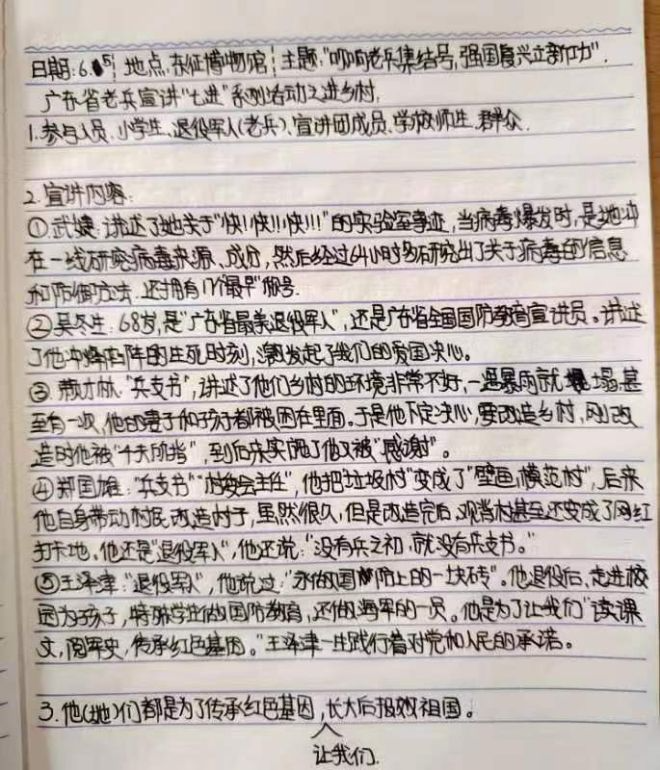 日期:6.5 地点:东征博物馆 主题:"吹响老兵集结号,强国复兴立新功".
广东省老兵宣讲"七进"系列活动之进乡村.
1.参与人员.小学生、退役军人(老兵)、宣讲团成员、学校师生、群众.
2.宣讲内容:
①武婕:讲述了她关于"快!快!!快!!!"的实验室事迹,当病毒爆发时,是她冲
在一线研究病毒来源、成分,然后经过64小时多研究出了关于病毒的信息
和防御方法.还拥有17个"最早"称号.
②吴冬生:68岁,是"广东省最美退役军人",还是广东省全国国防教育宣讲员。讲述
了他冲锋陷阵的生死时刻,激发起了我们的爱国决心。
③ 才林"兵支书",讲述了他们乡村的环境非常不好,一遇暴雨就塌,甚
至有一次,他的妻子和孩子都被困在里面。于是他下定决心,要改造乡村,刚改
造时他被"千夫所指",到后来实现了他又被"感谢"。
④郑国雄:"兵支书""村委会主任",他把"垃圾村"变成了"壁画,模范村",后来
他自身带动村民改造村子,虽然很久,但是改造完后,观背村甚至还变成了网红
打卡地。他还是"退役军人",他还说:"没有兵之初,就没有兵支书。"
⑤王泽津:"退役军人",他说过:"永做国防上的一块砖"。他退役后,走进校
园为孩子,特殊学生做国防教育,还做海军的一员。他是为了让我们"读课
文,阅军史,传承红色基因。"王泽津一生践行着对党和人民的承诺。
3.他(她)们都是为了传承红色基因,长大后报效祖国。
让我们.